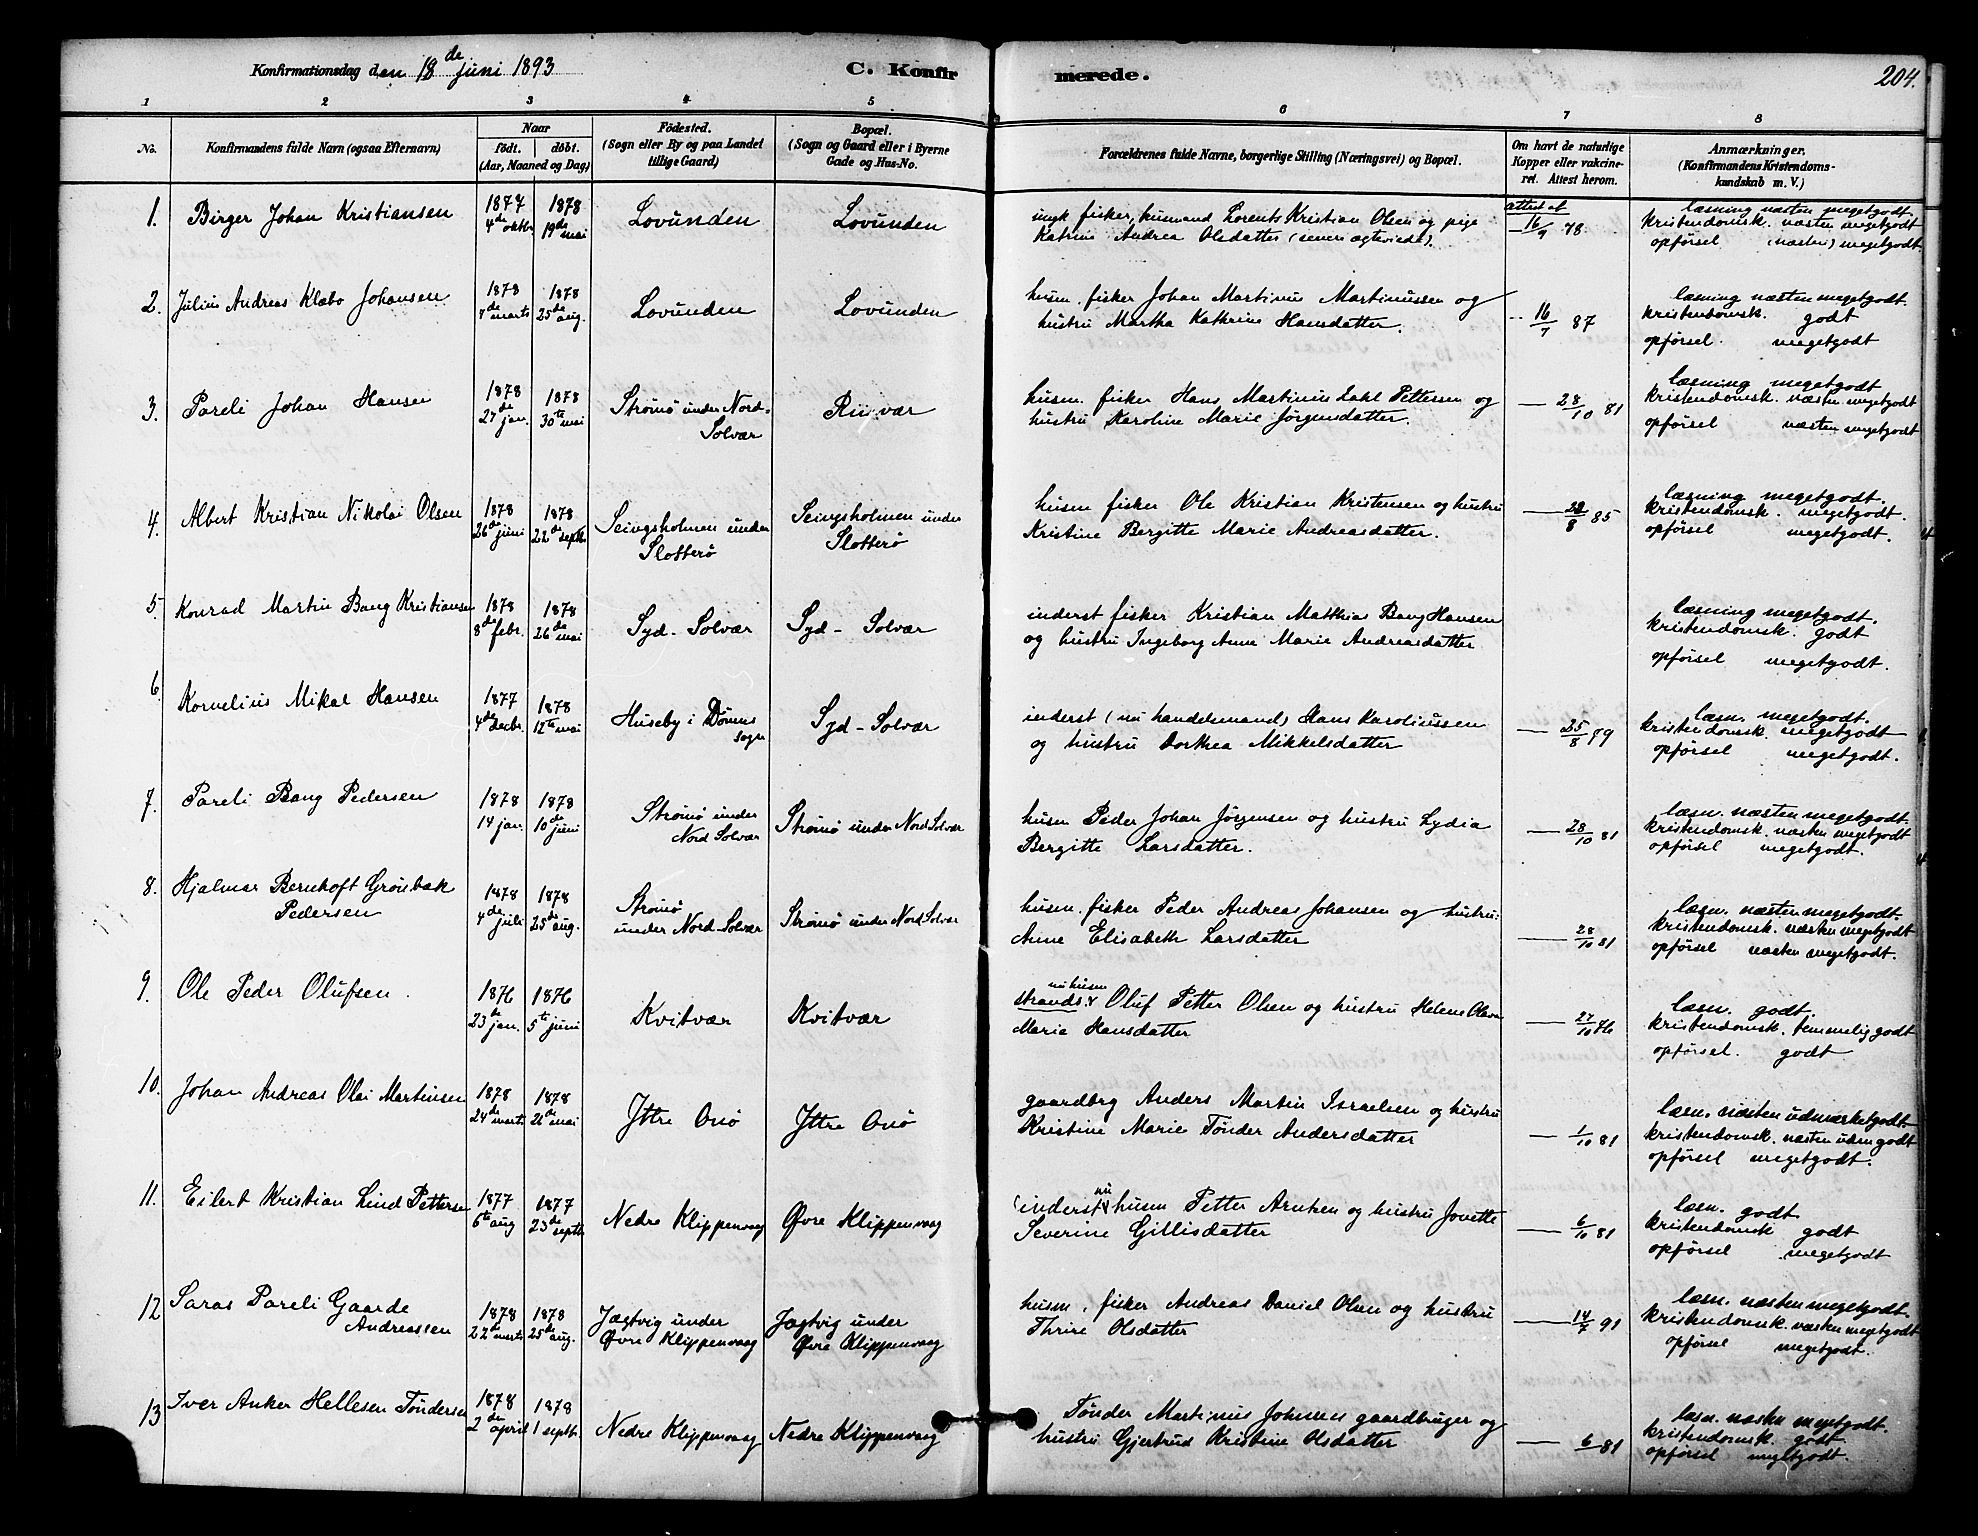 Konfirmationsdag den 18de juni 1893 C. Konfirmerede. 204.
1 2 3 4 5 6 7 8
No. Konfirmandens fulde Navn (ogsaa Efternavn) Naar födt. döbt. (Aar, Maaned og Dag) Födested. (Sogn eller By og paa Landet tillige Gaard) Bopæl. (Sogn og Gaard eller i Byerne Gade og Hus-No. Forældrenes fulde Navne, borgerlige Stilling (Næringsvei) og Bopæl. Om havt de naturlige Kopper eller vakcineret. Attest herom. Anmærkninger. (Konfirmandens Kristendomskundskab m. V.)
1. Birger Johan Kristiansen 1877 4de oktbr 1878 19de mai Lovunden Lovunden ungk fisker, husmand Lorents Kristian Olsen og pige attest af 16/9 78 læsning næsten megetgodt.
Katrine Andrea Olsdatter (senere ægteviede). kristendomsk. næsten megetgodt
opførsel (næsten) megetgodt.
2. Julius Andreas Klæbo Johansen 1878 7de marts 1878 25de aug. Lovunden Lovunden husm. fisker Johan Martinus Martinussen og 16/7 87 læsning næsten megetgodt.
hustru Martha Kathrine Hansdatter. kristendomsk. godt
opførsel. megetgodt
3. Pareli Johan Hansen 1878 27de jan. 1878 30te mai Strömö under Nord-Solvær husm. fisker Hans Martinus Dahl Pettersen og 28/10 81 læsning megetgodt
hustru Karoline Marie Jørgensdatter. kristendomsk. næsten megetgodt
opførsel næsten megetgodt
4. Albert Kristian Nikolai Olsen 1878 26de juni 1878 22de septb. Seingsholmen under Slotterø Seingsholmen under Slotterø husm fisker Ole Kristian Kristensen og hustru 28/8 85 læsning megetgodt.
Kristine Bergitte Marie Andreasdatter. kristendomsk. megetgodt.
opførsel megetgodt.
5. Konrad Martin Bang Kristiansen 1878 8de febr. 1878 26de mai Syd-Solvær Syd-Solvær inderst fisker Kristian Matthias Bang Hansen læsning megetgodt.
og hustru Ingeborg Anne Marie Andreasdatter kristendomsk. godt
opførsel megetgodt.
6. Kornelius Mikal Hansen 1877 4de decbr. 1878 12te mai Huseby i Dönnes sogn Syd-Solvær inderst (nu handelsmand) Hans Karoliussen 25/8 79 læsn. megetgodt.
og hustru Dorthea Mikkelsdatter kristendomsk. megetgodt
opførsel megetgodt.
7. Pareli Bang Pedersen 1878 14 jan. 1878 10de juni Strömö under Nord Solvær Strömö under Nord Solvær husm Peder Johan Jörgensen og hustru Lydia 28/10 81 læsn. næsten megetgodt.
Bergitte Larsdatter. kristendomsk. næsten megetgodt
opførsel megetgodt.
8. Hjalmar Bernhoft Grönbæk Pedersen 1878 4de juli 1878 25de aug. Strömö under Nord-Solvær Strömö under Nord Solvær husm. fisker Peder Andreas Johansen og hustru 28/10 81 læsn. næsten megetgodt.
Anne Elisabeth Larsdatter kristendomsk. næsten megetgodt
opførsel næsten megetgodt.
9. Ole Peder Olufsen. 1876 23de jan. 1876 5te juni Kvitvær Kvitvær nu husm strands. Oluf Petter Olsen og hustru Helene Olava 27/10 76 læsn. godt.
Marie Hansdatter kristendomsk. temmelig godt
opførsel. godt
10. Johan Andreas Olai Martinsen 1878 24de marts 1878 26de mai Yttre Onö Yttre Onö gaardbrg Anders Martin Israelsen og hustru 1/10 81 læsn. næsten udmærketgodt.
Kristine Marie Tönder Andersdatter kristendomsk. næsten udm godt
opførsel megetgodt.
11. Eilert Kristian Lind Pettersen 1877 6te aug 1877 23de septb Nedre Klippenvaag Øvre Klippenvaag (inderst) nu husm Petter Arntzen og hustru Jonette 6/10 81 læsn. godt
Severine Gillisdatter kristendomsk godt
opførsel megetgodt
12 Saras Pareli Gaarde Andreassen 1878 22de marts 1878 25de aug. Jægtvig under Øvre Klippenvaag Jægtvig under Øvre Klippenvaag husm, fisker Andreas Daniel Olsen og hustru 14/7 91 læsn. næsten megetgodt.
Thrine Olsdatter kristendomsk. næsten megetgodt
opførsel megetgodt.
13 Iver Anker Hellesen Töndersen 1878 2de april 1878 1 septb. Nedre Klippenvaag Nedre Klippenvaag Tönder Martinus Johnsen gaardbruger og 6/ 81 læsn. næsten megetgodt.
hustru Gjertrud Kristine Olsdatter kristendomsk. godt
opførsel megetgodt.